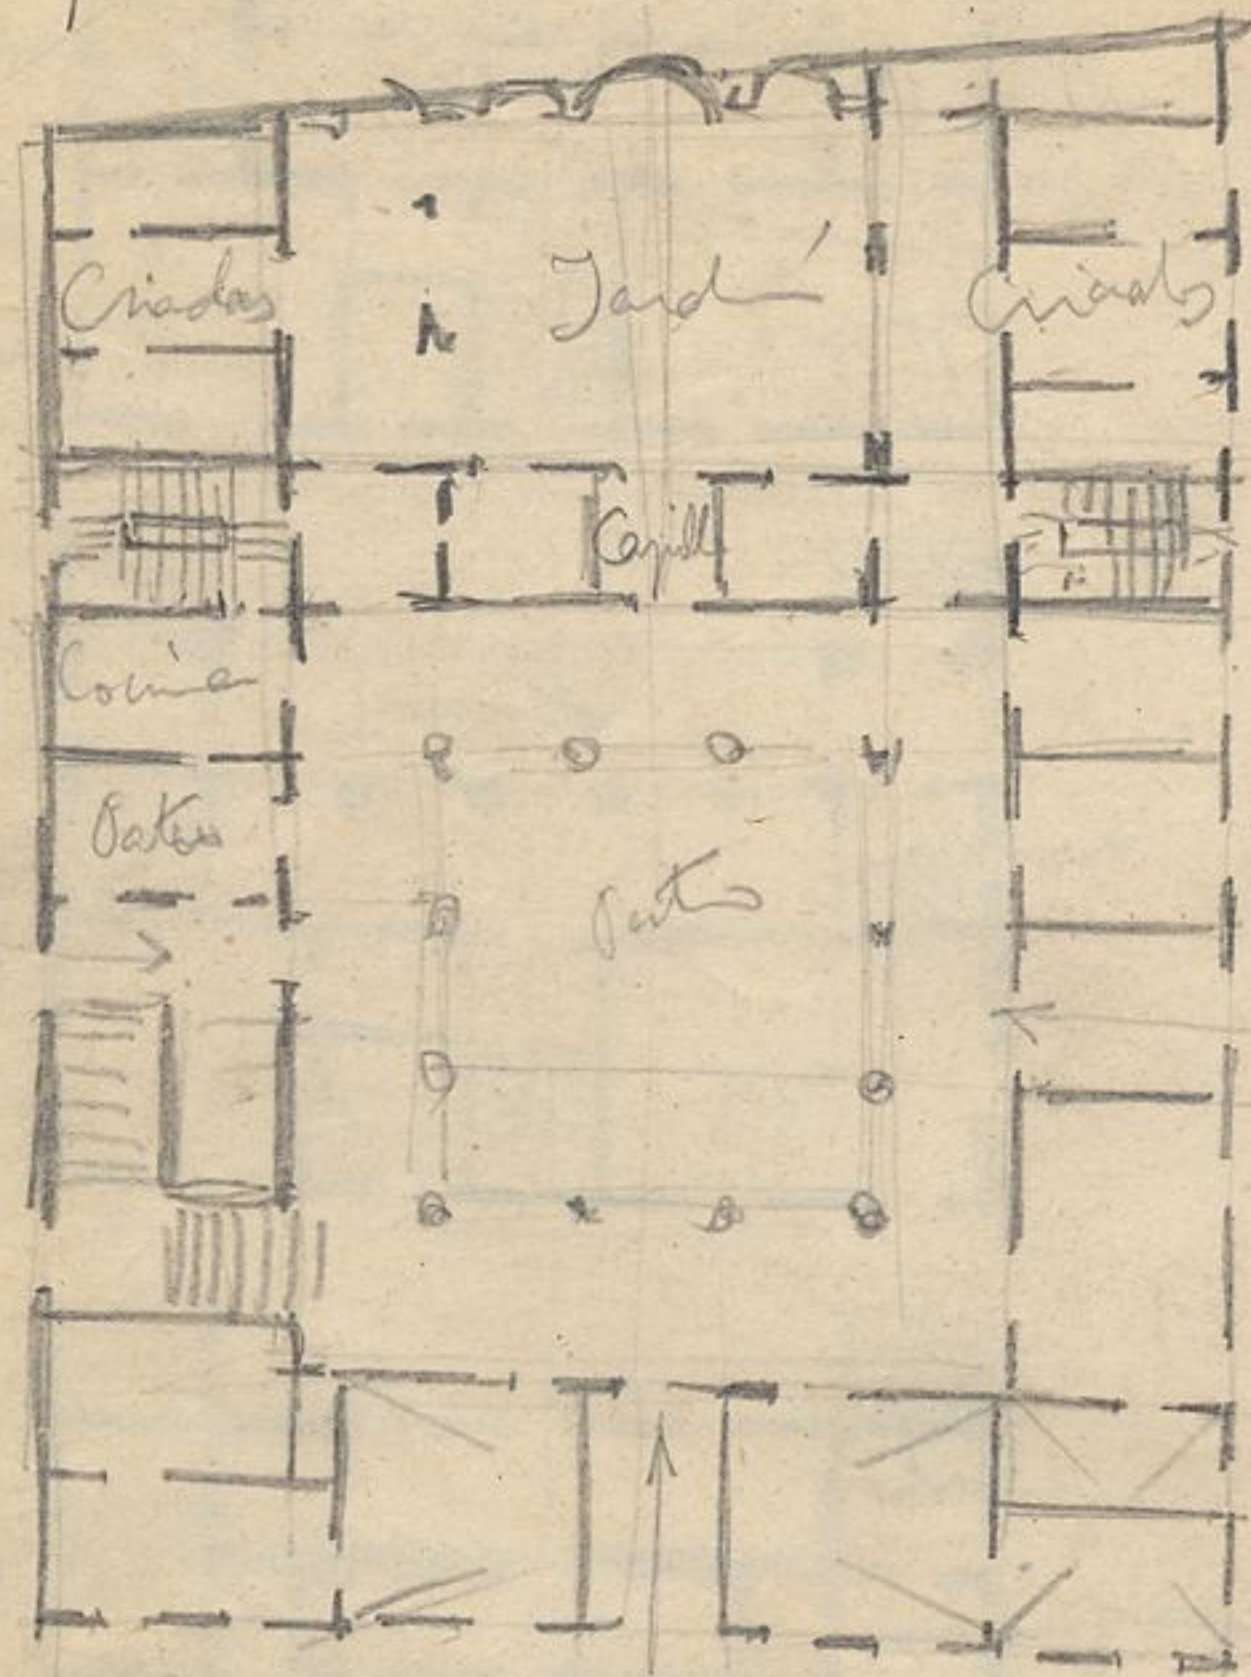 Criadas
Jardín
Criados
Capilla
Cocina
Patio
Patio